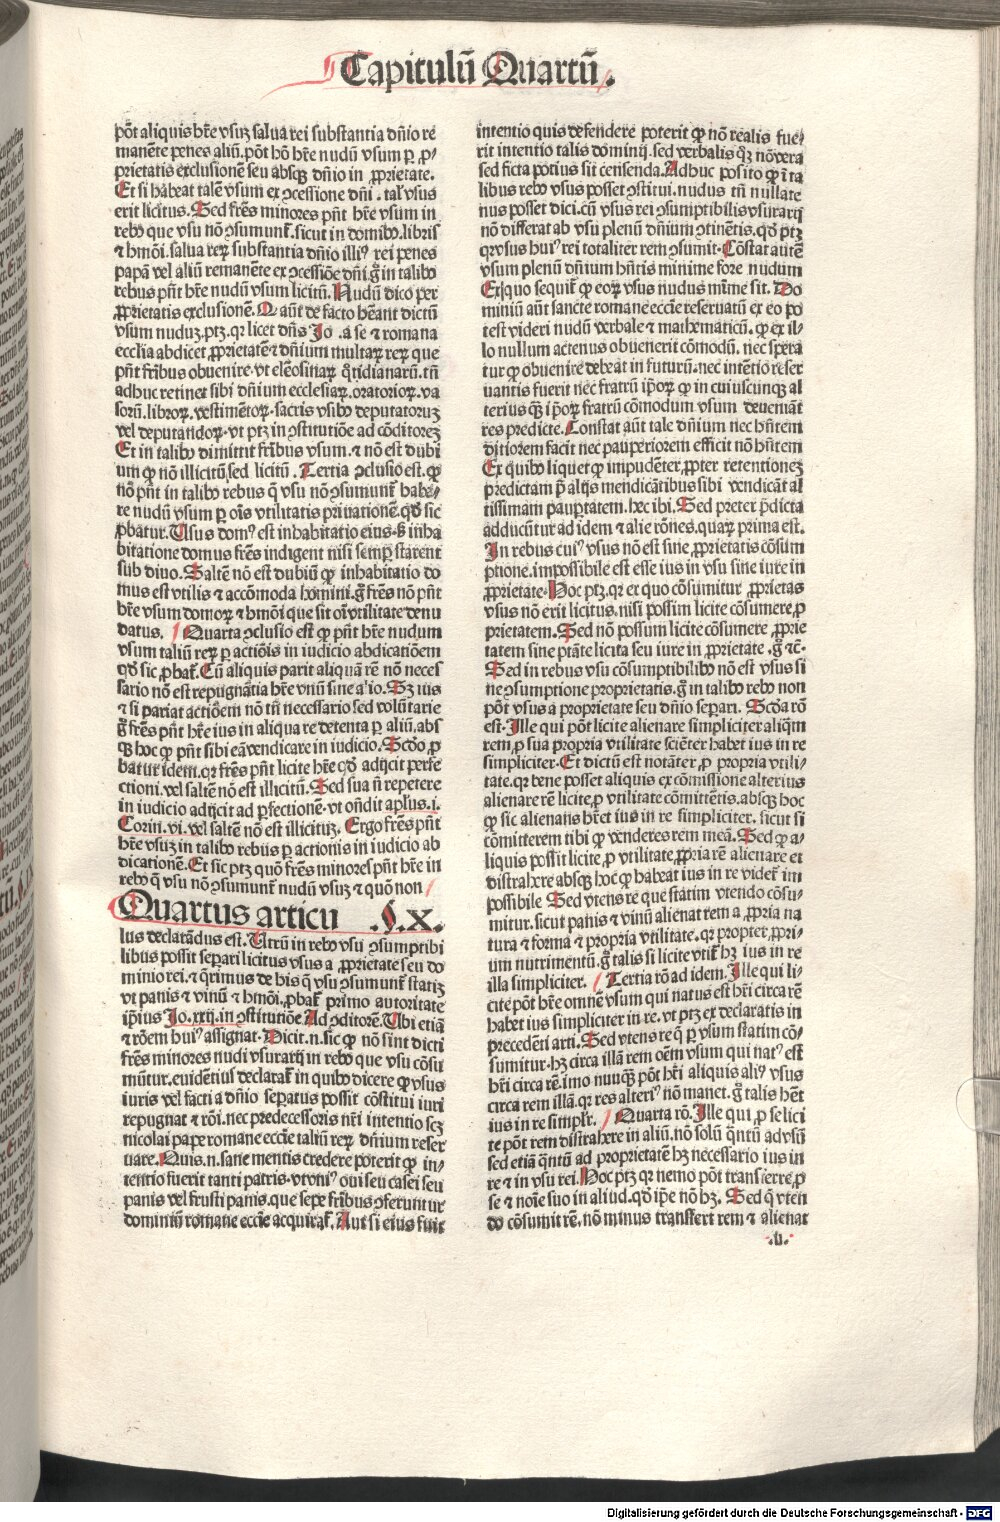 Capitulū Quartū.
põt aliquis hr̄e vsuȝ salua rei substantia dn̄io re
manēte penes aliū. põt hõ hr̄e nudū vsum ꝑ ꝓ-
prietatis exclusionē seu absqȝ dn̄io in ꝓprietate.
Et si habeat talē vsum ex ꝯcessione dn̄i. talꝭ vsus
erit licitus. Sed fr̄es minores pn̄t hr̄e vsum in
rebꝰ que vsu nō ꝯsumunt᷑. sicut in domibꝰ. libris
⁊ hm̄oi. salua reꝝ substantia dn̄io illiꝰ rei penes
papā vel aliū remanēte ex ꝯcessiōe dn̄i. g̃ in talibꝰ
rebus pn̄t hr̄e nudū vsum licitū. Nudū dico per
ꝓprietatis exclusionē. Q aūt de facto hēant dictū
vsum nuduȝ. ptȝ. qꝛ licet dn̄s Jo. a se ⁊ romana
ecclīa abdicet ꝓprietatē ⁊ dn̄ium multaꝝ reꝝ que
pn̄t fribus obuenire. vt elēosinaꝝ q̄tidianarū. tn̄
adhuc retinet sibi dn̄ium ecclesiaꝝ. oratorioꝝ. va
sorū. libroꝝ. vestimētoꝝ. sacris vsibꝰ deputatoruȝ
vel deputandoꝝ. vt ptȝ in ꝯstitutiōe ad cōditoreȝ
Et in talibꝰ dimittit fribus vsum. ⁊ nō est dubi
um ꝙ nō illicitū. sed licitū. Tertia ꝯclusio est. ꝙ
nō pn̄t in talibꝰ rebus q̄ vsu nō ꝯsumunt᷑ habe-
re nudū vsum ꝑ oīs vtilitatis priuationē. qd̓ sic
ꝓbatur. Usus domꝰ est inhabitatio eius. s̓ inha
bitatione domus fr̄es indigent nisi semꝑ starent
sub diuo. Saltē nō est dubiū ꝙ inhabitatio do
mus est vtilis ⁊ accōmoda homini. g̃ fr̄es nō pn̄t
hr̄e vsum domoꝝ ⁊ hm̄oi que sit oī vtilitate denu
datus. Quarta ꝯclusio est ꝙ pn̄t hr̄e nudum
vsum taliū reꝝ ꝑ actiōis in iudicio abdicatiōem
qd̓ sic ꝓbat᷑. Cū aliquis parit aliquā rē nō neces
sario nō est repugnātia hr̄e vnū sine a'io. Sȝ ius
⁊ si pariat actiōem nō tn̄ necessario sed volūtarie
g̃ fr̄es pn̄t hr̄e ius in aliqua re detenta ꝑ aliū. abs
qȝ hoc ꝙ pn̄t sibi eā vendicare in iudicio. Scd̓o ꝓ
batur idem. qꝛ fr̄es pn̄t licite hr̄e qd̓ adijcit perfe
ctioni. vel saltē nō est illicitū. Sed sua nō repetere
in iudicio adijcit ad ꝑfectionē. vt on̄dit ap̄lus. i.
Corin. vi. vel saltē nō est illicituȝ. Ergo fr̄es pn̄t
hr̄e vsuȝ in talibꝰ rebus ꝑ actionis in iudicio ab
dicationē. Et sic ptȝ quō fr̄es minores pn̄t hr̄e in
rebꝰ q̄ vsu nō ꝯsumunt᷑ nudū vsuȝ ⁊ quō non
Quartus articu .§.X.
lus declarādus est. Utrū in rebꝰ vsu ꝯsumptibi
libus possit separi licitus vsus a ꝓprietate seu do
minio rei. ⁊ q̄rimus de his q̄ vsu ꝯsumunt᷑ statiȝ
vt panis ⁊ vinū ⁊ hm̄oi. ꝓbat᷑ primo autoritate
ip̄ius Jo. xxij. in ꝯstitutiōe Ad ꝯditorē. Ubi etiā
⁊ rōem huiꝰ assignat. Dicit. n. sic ꝙ nō sint dicti
fr̄es minores nudi vsurarij in rebꝰ que vsu cōsu
mūtur. euidētius declarat᷑ in quibꝰ dicere ꝙ vsus
iuris vel facti a dn̄io seꝑatus possit cōstitui iuri
repugnat ⁊ rōi. nec predecessoris nr̄i intentio scȝ
nicolai pape romane eccīe taliū reꝝ dn̄ium reser
uare. Quis. n. sane mentis credere poterit ꝙ in-
tentio fuerit tanti patris. vt vniꝰ oui seu casei seu
panis vel frusti panis. que sepe fribus ꝯferuntur
dominiū romane eccīe acquirat᷑. Aut si eius fuit
intentio quis defendere poterit ꝙ nō realis fue-
rit intentio talis dominij. sed verbalis qȝ nō vera
sed ficta potius sit censenda. Adhuc posito ꝙ ī ta
libus rebꝰ vsus posset ꝯstitui. nudus tn̄ nullate
nus posset dici. cū vsus rei ꝯsumptibilis vsurarij
nō differat ab vsu plenū dn̄ium ꝯtinētis. qd̓ ptȝ
qꝛ vsus huiꝰ rei totaliter rem ꝯsumit. Cōstat autē
vsum plenū dn̄ium hn̄tis minime fore nudum
Ex quo sequit᷑ ꝙ eoꝝ vsus nudus mīme sit. Do
miniū aūt sancte romane eccīe reseruatū ex eo po
test videri nudū verbale ⁊ mathematicū. ꝙ ex il-
lo nullum actenus obuenerit cōmodū. nec spera
tur ꝙ obuenire debeat in futurū. nec intētio reser
uantis fuerit nec fratrū ip̄oꝝ ꝙ in cuiuscunqȝ al
terius qȝ ip̄oꝝ fratrū cōmodum vsum deueniāt
res predicte. Constat aūt tale dn̄ium nec hn̄tem
ditiorem facit nec pauperiorem efficit nō hn̄tem
Ex quibꝰ liquet ꝙ impudēter. ꝓpter retentioneȝ
predictam p̄ alijs mendicātibus sibi vendicāt al
tissimam pauꝑtatem. hec ibi. Sed preter p̄dicta
adducūtur ad idem ⁊ alie rōnes. quaꝝ prima est.
In rebus cuiꝰ vsus nō est sine ꝓprietatis cōsum
ptione. impossibile est esse ius in vsu sine iure in
ꝓprietate. Hoc ptȝ. qꝛ ex quo cōsumitur ꝓprietas
vsus nō erit licitus. nisi possim licite cōsumere ꝓ
prietatem. Sed nō possum licite cōsumere ꝓprie
tatem sine ptāte licita seu iure in ꝓprietate. g̃ ⁊c̄.
Sed in rebus vsu cōsumptibilibꝰ nō est vsus si
ne ꝯsumptione proprietatis. g̃ in talibꝰ rebꝰ non
põt vsus a proprietate seu dn̄io seꝑari. Scd̓a rō
est. Ille qui põt licite alienare simpliciter aliq̄m
rem. ꝓ sua propria vtilitate sciēter habet ius in re
simpliciter. Et dictū est notāter ꝓ propria vtili-
tate. qꝛ bene posset aliquis ex cōmissione alterius
alienare rē licite. ꝓ vtilitate cōmittētis. absqȝ hoc
ꝙ sic alienans hr̄et ius in re simpliciter. sicut si
cōmitterem tibi ꝙ venderes rem meā. Sed ꝙ a-
liquis possit licite ꝓ vtilitate ꝓpria rē alienare et
distrahere absqȝ hoc ꝙ habeat ius in re videt᷑ im
possibile Sed vtens re que statim vtendo cōsu-
mitur. sicut panis ⁊ vinū alienat rem a ꝓpria na
tura ⁊ forma ⁊ propria vtilitate. qꝛ propter ꝓpri-
um nutrimentū. g̃ talis si licite vtit᷑ hȝ ius in re
illa simpliciter. Tertia rō ad idem. Ille qui li-
cite põt hr̄e omnē vsum qui natus est hr̄i circa rē
habet ius simpliciter in re. vt ptȝ ex declaratis in
precedēti arti. Sed vtens re q̄ ꝑ vsum statim cō-
sumitur. hȝ circa illā rem oēm vsum qui natꝰ est
hr̄i circa rē. imo nūqȝ põt hr̄i aliquis aliꝰ vsus
circa rem illā. qꝛ res alteriꝰ nō manet. g̃ talis hēt
ius in re simplr̄. Quarta rō. Ille qui ꝓ se lici
te põt rem distrahere in aliū. nō solū q̄ntū ad vsū
sed etiā q̄ntū ad proprietatē hȝ necessario ius in
re ⁊ in vsu rei. Hoc ptȝ qꝛ nemo põt transferre ꝓ
se ⁊ noīe suo in aliud. qd̓ ip̄e nō hȝ. Sed q̄ vten
do cōsumit rē. nō minus transfert rem ⁊ alienat
.v.
Digitalisierung gefördert durch die Deutsche Forschungsgemeinschaft - DFG